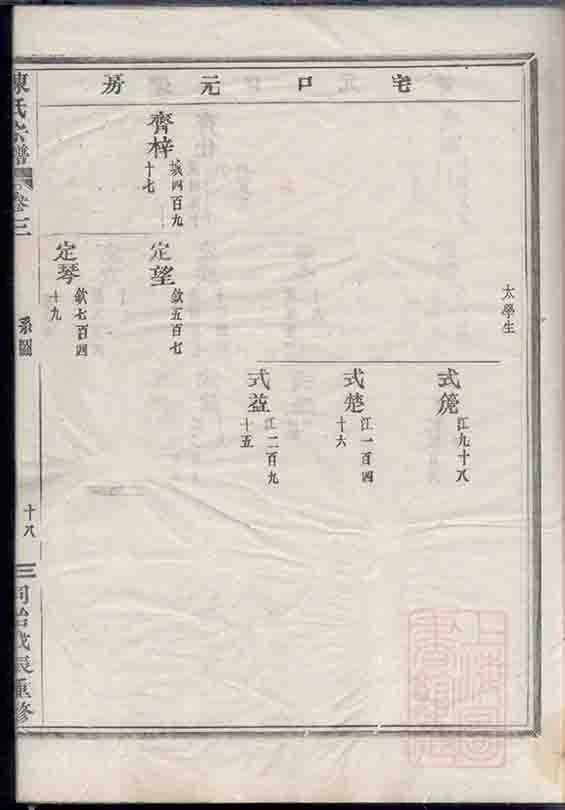 宅口元房
太學生
式篪
江九十八
式楚
江一百四
十六
式益
江二百九
十五
齊梓
城四百九
十七
定望
欽五百七
定琴
欽七百四
十九
陳氏宗譜
卷三
系圖
十八
三
同治戊辰重修
上海圖
書館藏